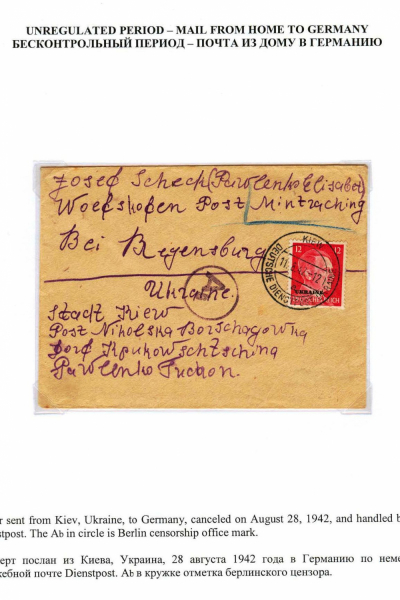 UNREGULATED PERIOD – MAIL FROM HOME TO GERMANY
БЕСКОНТРОЛЬНЫЙ ПЕРИОД – ПОЧТА ИЗ ДОМУ В ГЕРМАНИЮ
Josef Schech (Pawlenko Elisabet)
Wolfskofen Post Mintraching
Bei Regensburg
Ukraine.
Stadt Kiew
Post Nikolska Borschagowka
Dorf Krukowschtsching
Pawlenko
KIEW
DEUTSCHE DIENST
12 12
UKRAINE
r sent from Kiev, Ukraine, to Germany, canceled on August 28, 1942, and handled b
stpost. The Ab in circle is Berlin censorship office mark.
ерт послан из Киева, Украина, 28 августа 1942 года в Германию по неме
жебной почте Dienstpost. Ab в кружке отметка берлинского цензора.